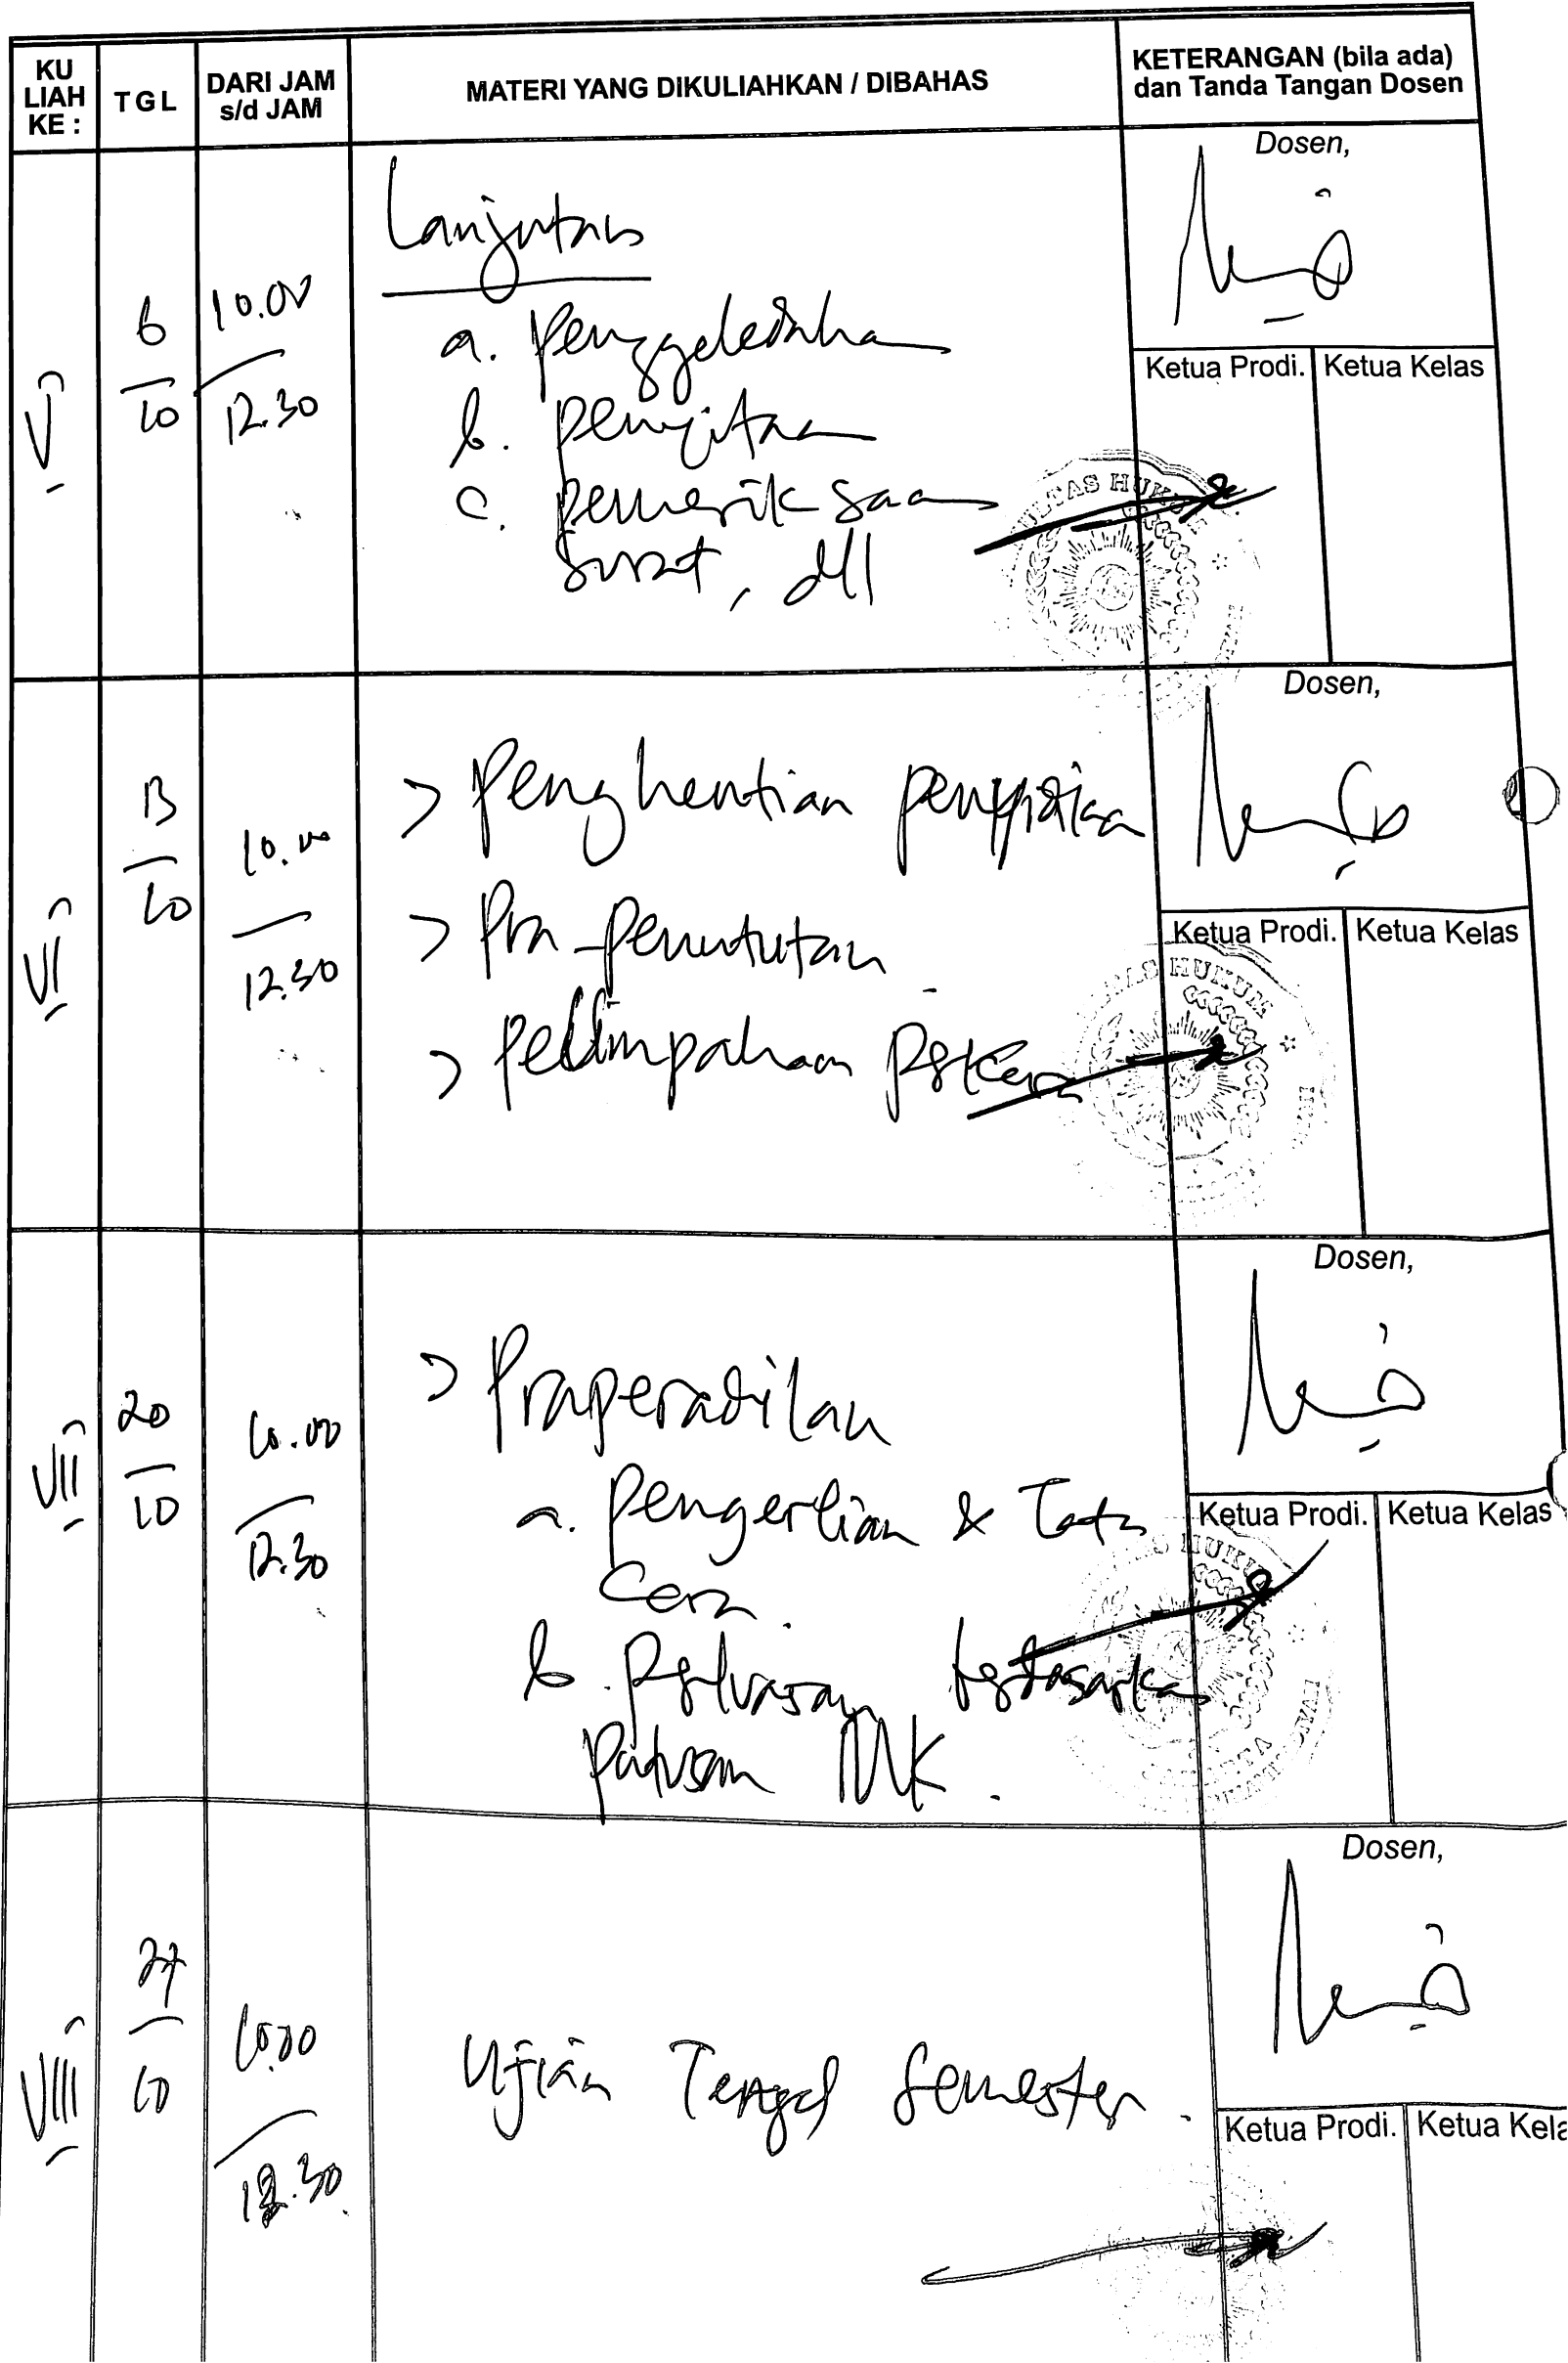 KU
LIAH
KE :
TGL
DARI JAM
s/d JAM
MATERI YANG DIKULIAHKAN / DIBAHAS
KETERANGAN (bila ada)
dan Tanda Tangan Dosen
V
6
10
10.00
12.30
Lanjutan
a. Penggeledahan
b. Penyitaan
c. Pemeriksaan
Surat, dll
Dosen,
Ketua Prodi.
Ketua Kelas
ULTAS HUKUM
VI
13
10
10.00
12.30
> Penghentian Penyidikan
> Pra-penuntutan
> Pelimpahan Perkara
Dosen,
Ketua Prodi.
Ketua Kelas
TAS HUKUM
VII
20
10
10.00
12.30
> Praperadilan
a. Pengertian & Tata
Cara.
b. Perluasan berdasarkan
Putusan MK.
Dosen,
Ketua Prodi.
Ketua Kelas
AS HUKU
VIII
27
10
10.00
12.30
Ujian Tengah Semester.
Dosen,
Ketua Prodi.
Ketua Kela